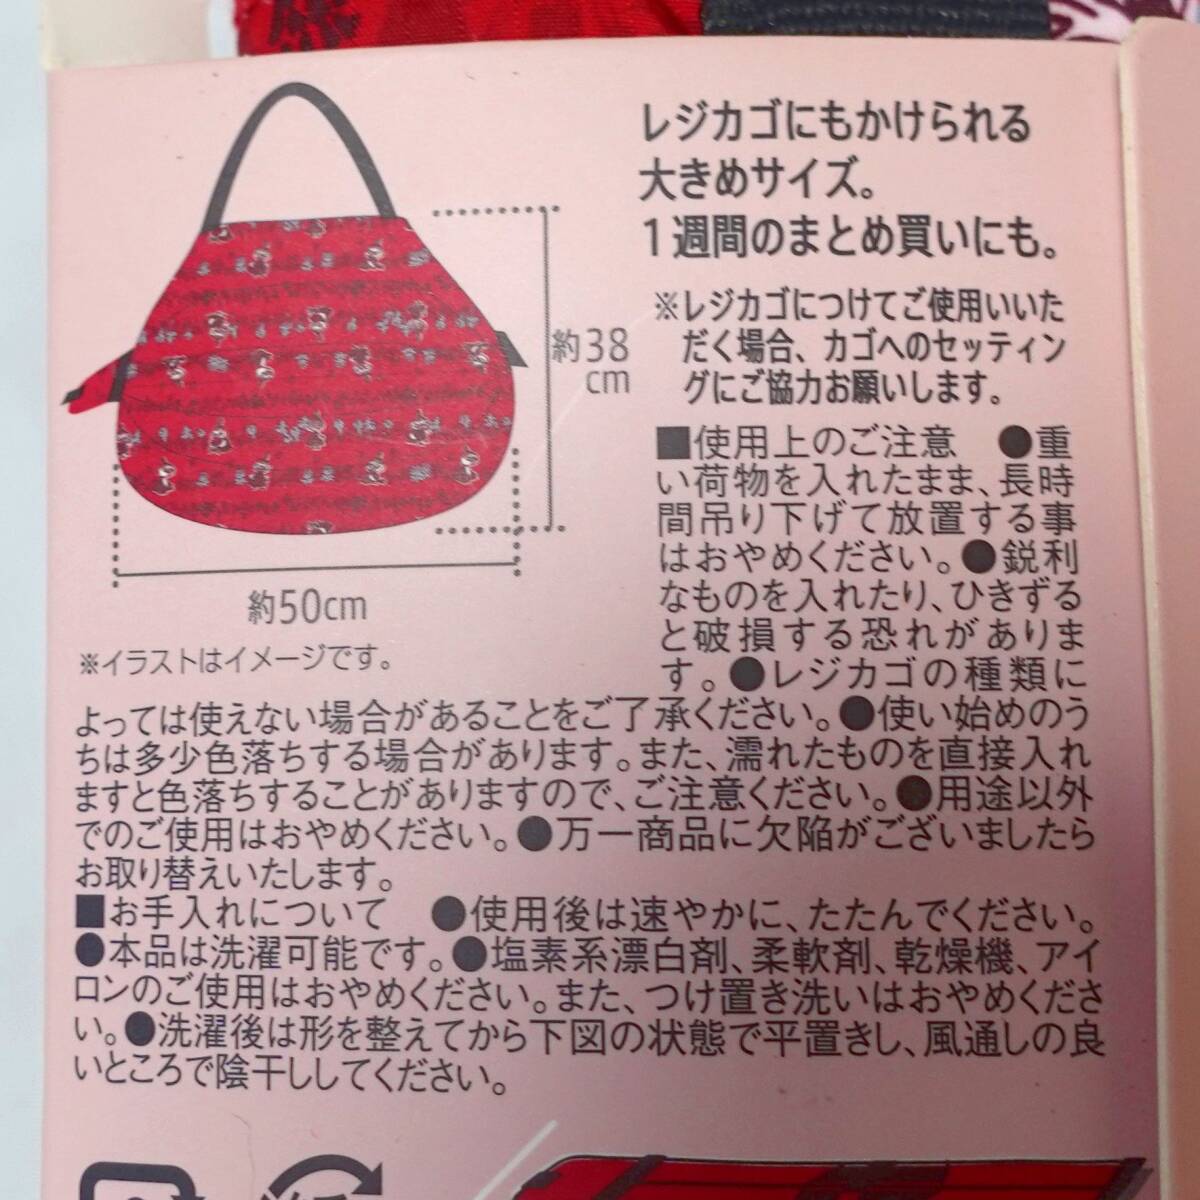 レジカゴにもかけられる
大きめサイズ。
1週間のまとめ買いにも。
※レジカゴにつけてご使用いいた
だく場合、カゴへのセッティン
グにご協力お願いします。
約38
cm
約50cm
※イラストはイメージです。
■使用上のご注意 ●重
い荷物を入れたまま、長時
間吊り下げて放置する事
はおやめください。●鋭利
なものを入れたり、ひきずる
と破損する恐れがありま
す。●レジカゴの種類に
よっては使えない場合があることをご了承ください。●使い始めのう
ちは多少色落ちする場合があります。また、濡れたものを直接入れ
ますと色落ちすることがありますので、ご注意ください。●用途以外
でのご使用はおやめください。●万一商品に欠陥がございましたら
お取り替えいたします。
■お手入れについて ●使用後は速やかに、たたんでください。
●本品は洗濯可能です。●塩素系漂白剤、柔軟剤、乾燥機、アイ
ロンのご使用はおやめください。また、つけ置き洗いはおやめくださ
い。●洗濯後は形を整えてから下図の状態で平置きし、風通しの良
いところで陰干ししてください。